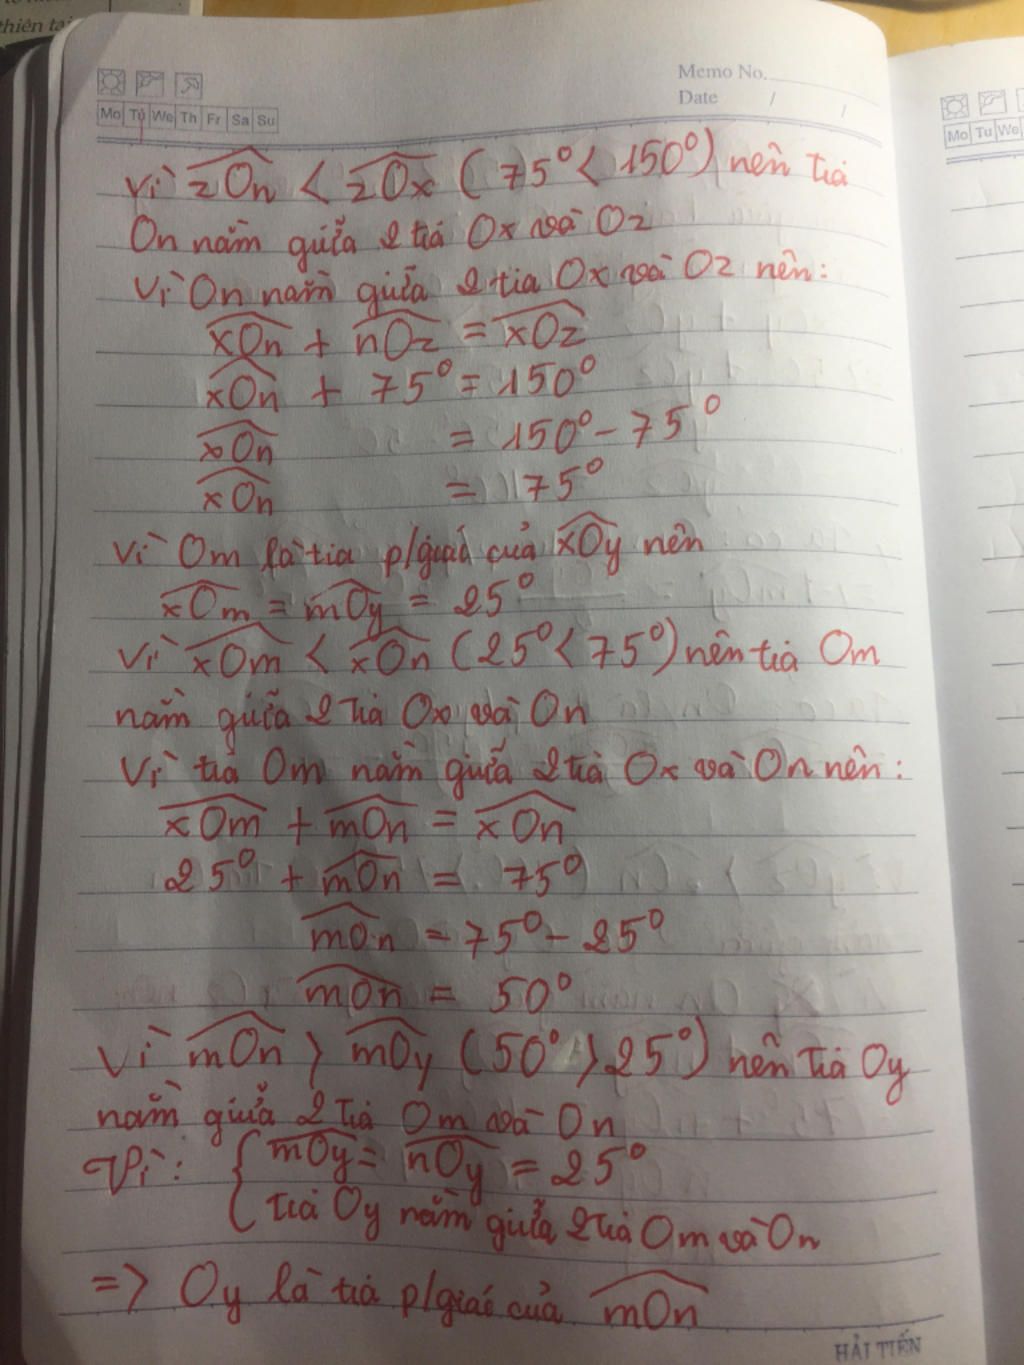 thiên tai
Memo No.
Date / /
Mo Tu We Th Fr Sa Su
Mo Tu We
Vì zOn < zOx (75° < 150°) nên tia
On nằm giữa 2 tia Ox và Oz
Vì On nằm giữa 2 tia Ox và Oz nên:
xOn + nOz = xOz
xOn + 75° = 150°
xOn = 150° - 75°
xOn = 75°
Vì Om là tia p/giác của xOy nên
xOm = mOy = 25°
Vì xOm < xOn (25° < 75°) nên tia Om
nằm giữa 2 tia Ox và On
Vì tia Om nằm giữa 2 tia Ox và On nên:
xOm + mOn = xOn
25° + mOn = 75°
mOn = 75° - 25°
mOn = 50°
Vì mOn > mOy (50° > 25°) nên tia Oy
nằm giữa 2 tia Om và On
Vì: { mOy = nOy = 25°
tia Oy nằm giữa 2 tia Om và On
=> Oy là tia p/giác của mOn
HẢI TIẾN